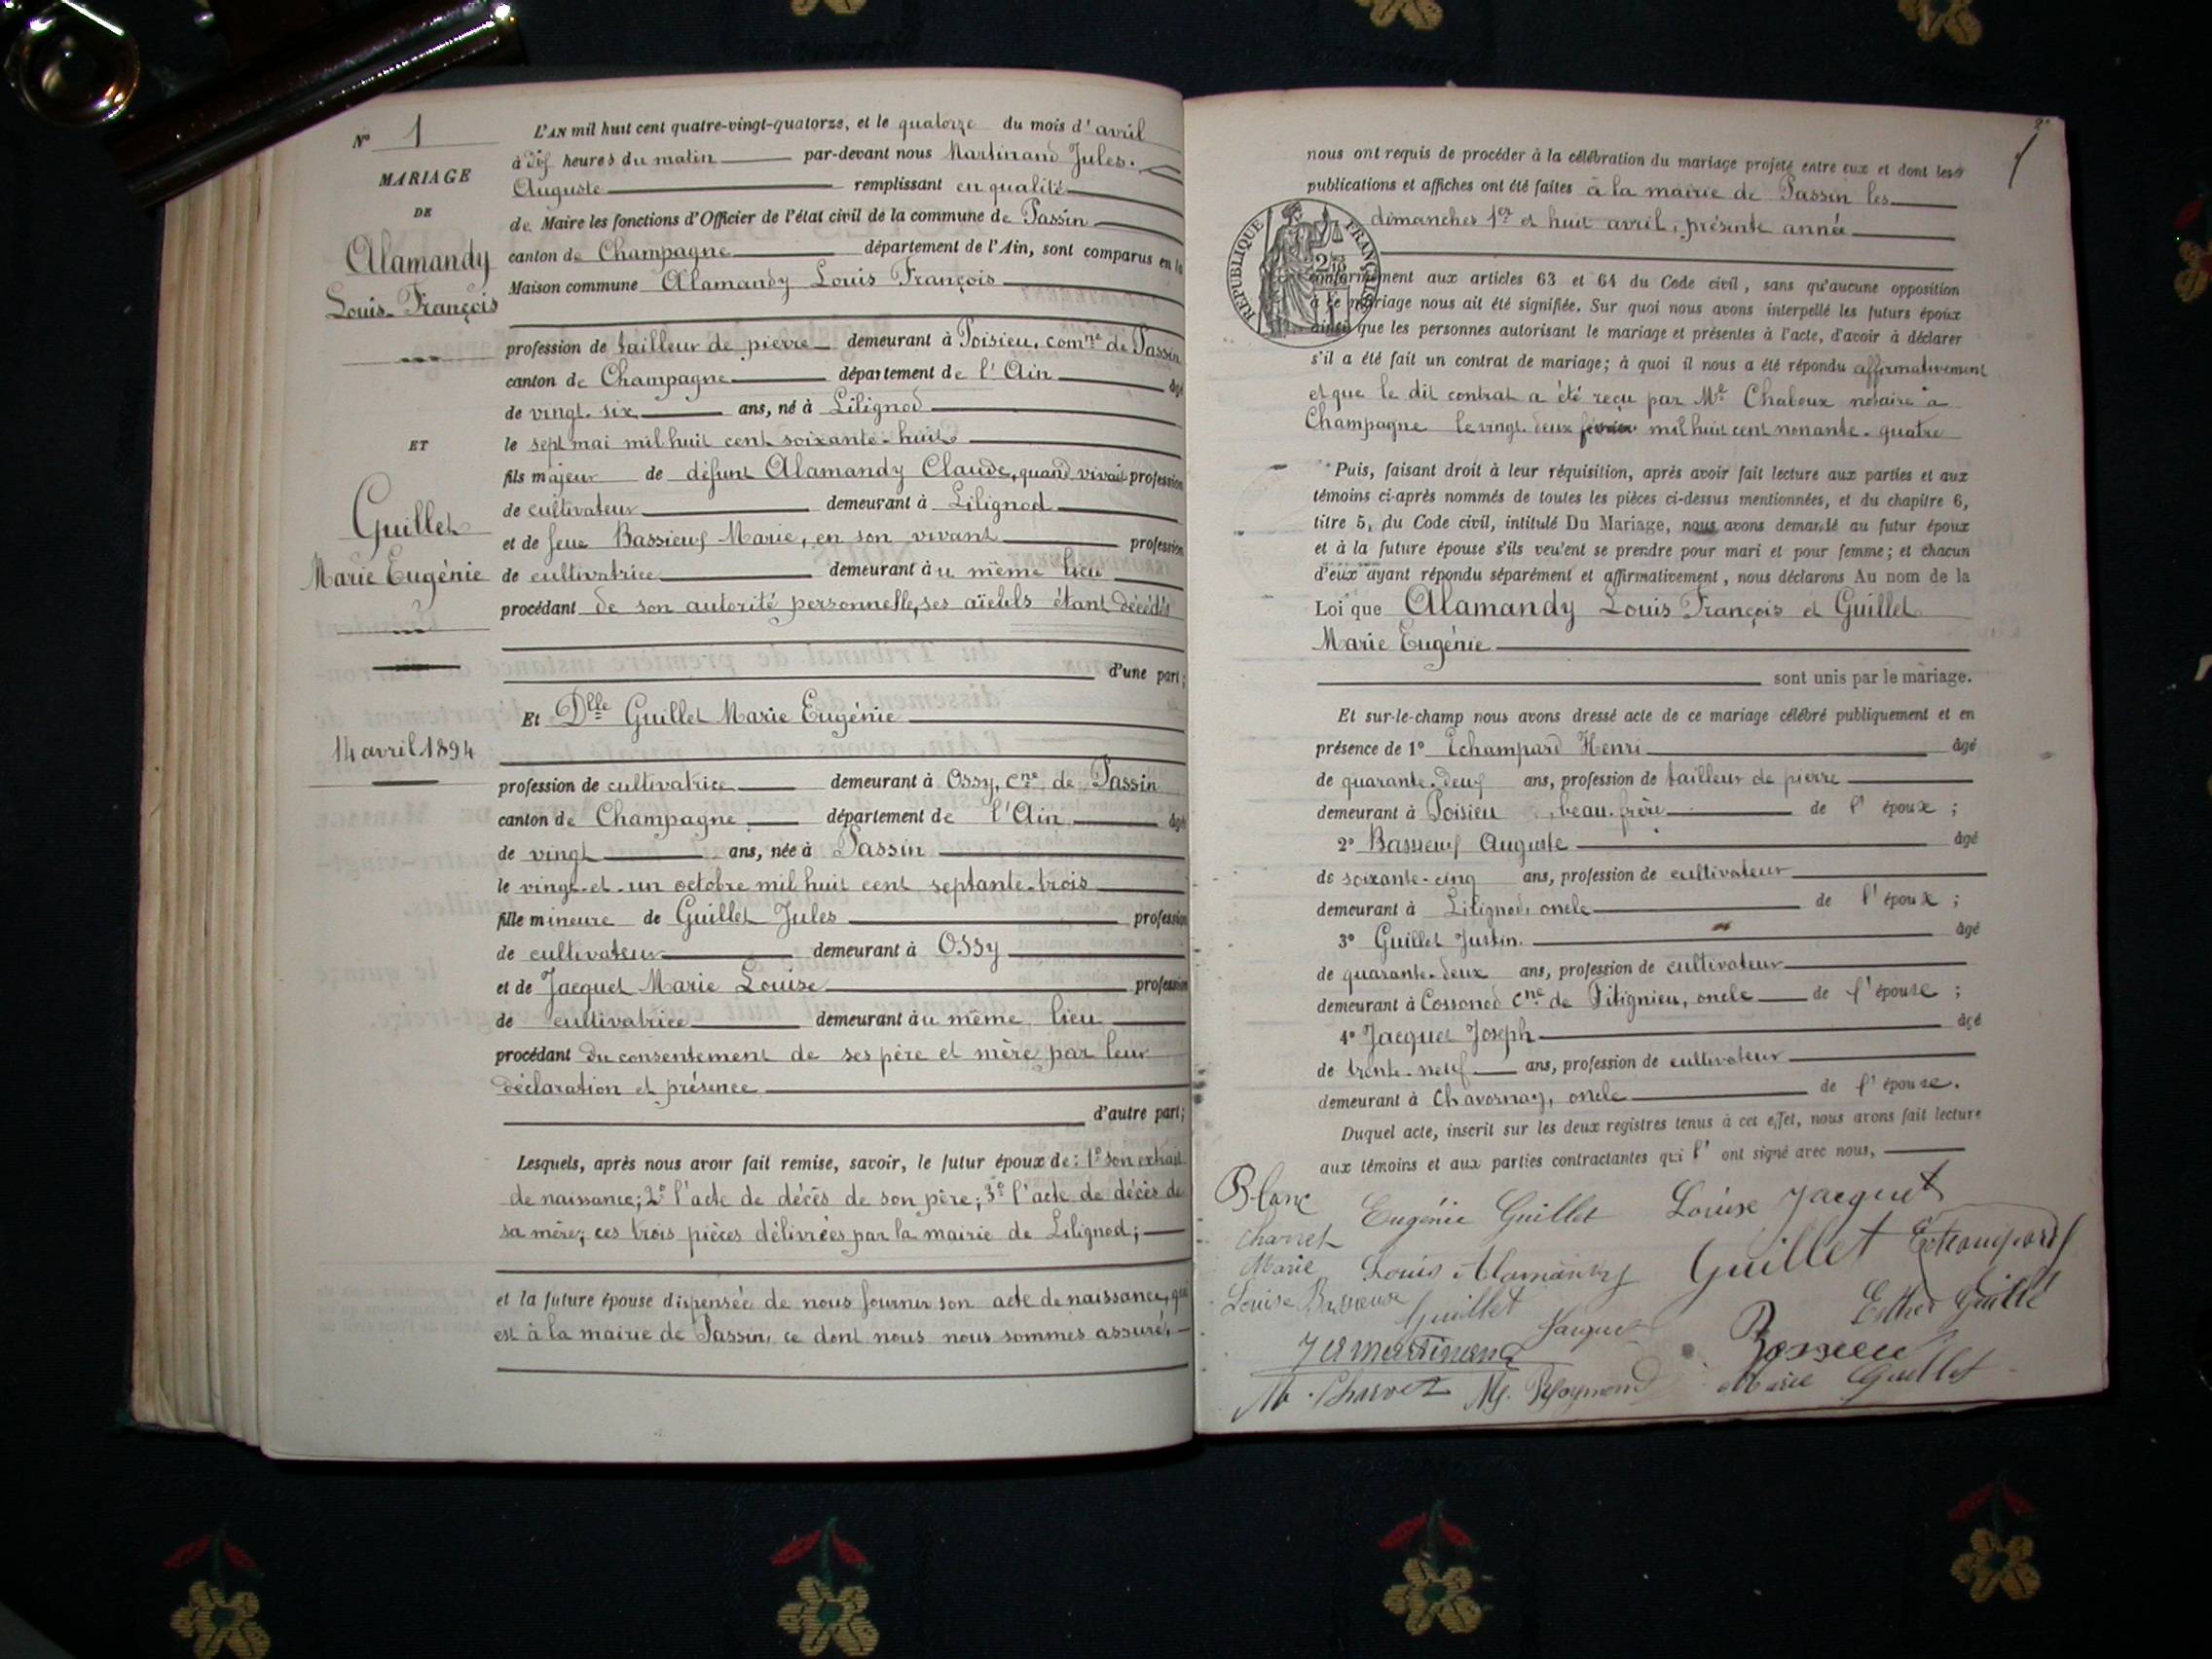 N° 1
MARIAGE
DE
Alamandy
Louis François
ET
Guillet
Marie Eugénie
14 avril 1894
L'AN mil huit cent quatre-vingt-quatorze, et le quatorze du mois d'avril
à dix heures du matin par-devant nous Martinand Jules.
Auguste remplissant en qualité
de Maire les fonctions d'Officier de l'état civil de la commune de Passin
canton de Champagne département de l'Ain, sont comparus en la
Maison commune Alamandy Louis François
profession de tailleur de pierre demeurant à Poisieu, comne de Passin
canton de Champagne département de l'Ain âgé
de vingt-six ans, né à Lilignod
le sept mai mil huit cent soixante-huit
fils majeur de défunt Alamandy Claude, quand vivait profession
de cultivateur demeurant à Lilignod
et de feue Bassieux Marie, en son vivant profession
de cultivatrice demeurant àu même lieu
procédant de son autorité personnelle, ses aïeuls étant décédés
d'une part;
Et Dlle Guillet Marie Eugénie
profession de cultivatrice demeurant à Ossy, cne de Passin
canton de Champagne département de l'Ain âgé
de vingt ans, née à Passin
le vingt-et-un octobre mil huit cent septante-trois
fille mineure de Guillet Jules profession
de cultivateur demeurant à Ossy
et de Jacquet Marie Louise profession
de cultivatrice demeurant àu même lieu
procédant du consentement de ses père et mère par leur
déclaration et présence
d'autre part;
Lesquels, après nous avoir fait remise, savoir, le futur époux de: 1° son extrait
de naissance; 2° l'acte de décès de son père; 3° l'acte de décès de
sa mère; ces trois pièces délivrées par la mairie de Lilignod;
et la future épouse dispensée de nous fournir son acte de naissance, qui
est à la mairie de Passin, ce dont nous nous sommes assuré,
2e
nous ont requis de procéder à la célébration du mariage projeté entre eux et dont les
publications et affiches ont été faites à la mairie de Passin les
dimanches 1er et huit avril, présente année
RÉPUBLIQUE FRANÇAISE
conformément aux articles 63 et 64 du Code civil, sans qu'aucune opposition
à ce mariage nous ait été signifiée. Sur quoi nous avons interpellé les futurs époux
ainsi que les personnes autorisant le mariage et présentes à l'acte, d'avoir à déclarer
s'il a été fait un contrat de mariage; à quoi il nous a été répondu affirmativement
et que le dit contrat a été reçu par Me Chaboux notaire à
Champagne le vingt-deux février mil huit cent nonante-quatre
Puis, faisant droit à leur réquisition, après avoir fait lecture aux parties et aux
témoins ci-après nommés de toutes les pièces ci-dessus mentionnées, et du chapitre 6,
titre 5, du Code civil, intitulé Du Mariage, nous avons demandé au futur époux
et à la future épouse s'ils veulent se prendre pour mari et pour femme; et chacun
d'eux ayant répondu séparément et affirmativement, nous déclarons Au nom de la
Loi que Alamandy Louis François et Guillet
Marie Eugénie
sont unis par le mariage.
Et sur-le-champ nous avons dressé acte de ce mariage célébré publiquement et en
présence de 1° Echampard Henri âgé
de quarante-deux ans, profession de tailleur de pierre
demeurant à Poisieu, beau-frère de l'époux;
2° Bassieux Auguste âgé
de soixante-cinq ans, profession de cultivateur
demeurant à Lilignod, oncle de l'époux;
3° Guillet Justin. âgé
de quarante-deux ans, profession de cultivateur
demeurant à Cossonod cne de Titignieu, oncle de l'épouse;
4° Jacquet Joseph âgé
de trente-neuf ans, profession de cultivateur
demeurant à Chavornay, oncle de l'épouse.
Duquel acte, inscrit sur les deux registres tenus à cet effet, nous avons fait lecture
aux témoins et aux parties contractantes qui l'ont signé avec nous,
Blanc Eugénie Guillet Louise Jacquet
Charvet
Marie Louis Alamandy Guillet Echampard
Louise Bassieux Guillet Jacquet Esther Guillet
J A Martinand Bassieu
M. Charvet My. Reymond Marie Guillet